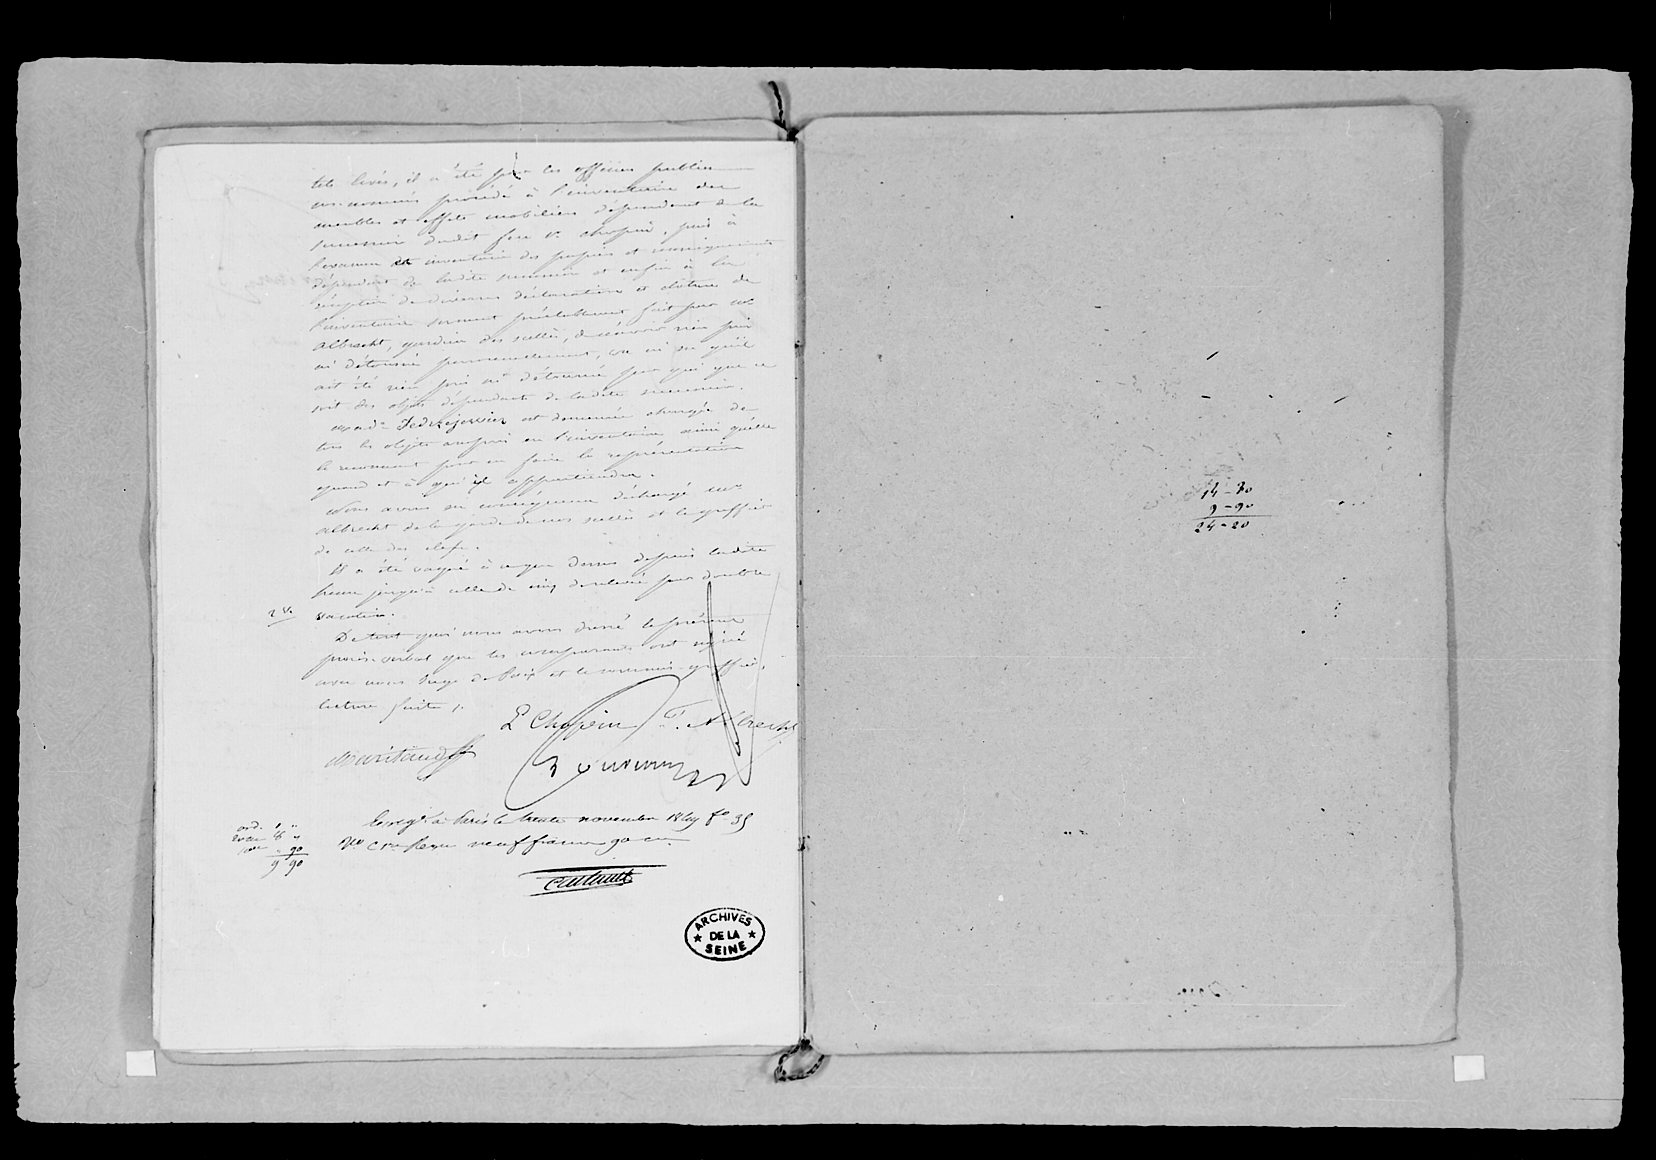 tés levés, il a été par les officiers publics
sus-nommés procédé à l'inventaire des
meubles et effets mobiliers dépendant de la
succession dudit feu sr. Chopin, puis à
l'examen et inventaire des papiers et renseignements
dépendant de ladite succession et enfin à la
réception de diverses déclarations et clôture de
l'inventaire serment préalablement fait par mr
Albrecht, gardien des scellés, de n'avoir rien pris
ni détourné personnellement, vu ni su qu'il
ait été rien pris ni détourné par qui que ce
soit des objets dépendants de ladite succession.
Mad.e Jedrzejewicz est demeurée chargée de
tous les objets compris en l'inventaire ainsi qu'elle
le reconnait pour en faire la représentation
quand et à qui il appartiendra.
Nous avons en conséquence déchargé mr
Albrecht de la garde de nos scellés et le greffier
de celle des clefs.
Il a été vaqué à ce que dessus depuis ladite
heure jusqu'à celle de cinq de relevée par double
2 v. vacation.
De tout quoi nous avons dressé le présent
procès-verbal que les comparants ont signé
avec nous Juge de Paix et le commis-greffier,
lecture faite /.
L Chopin T. Albrecht
Enregé à Paris le trente novembre 1849 f° 35
Vo c. Reçu neuf francs 90 c.
90
9 90
ARCHIVES
DE LA
SEINE
14-30
9-90
24-20